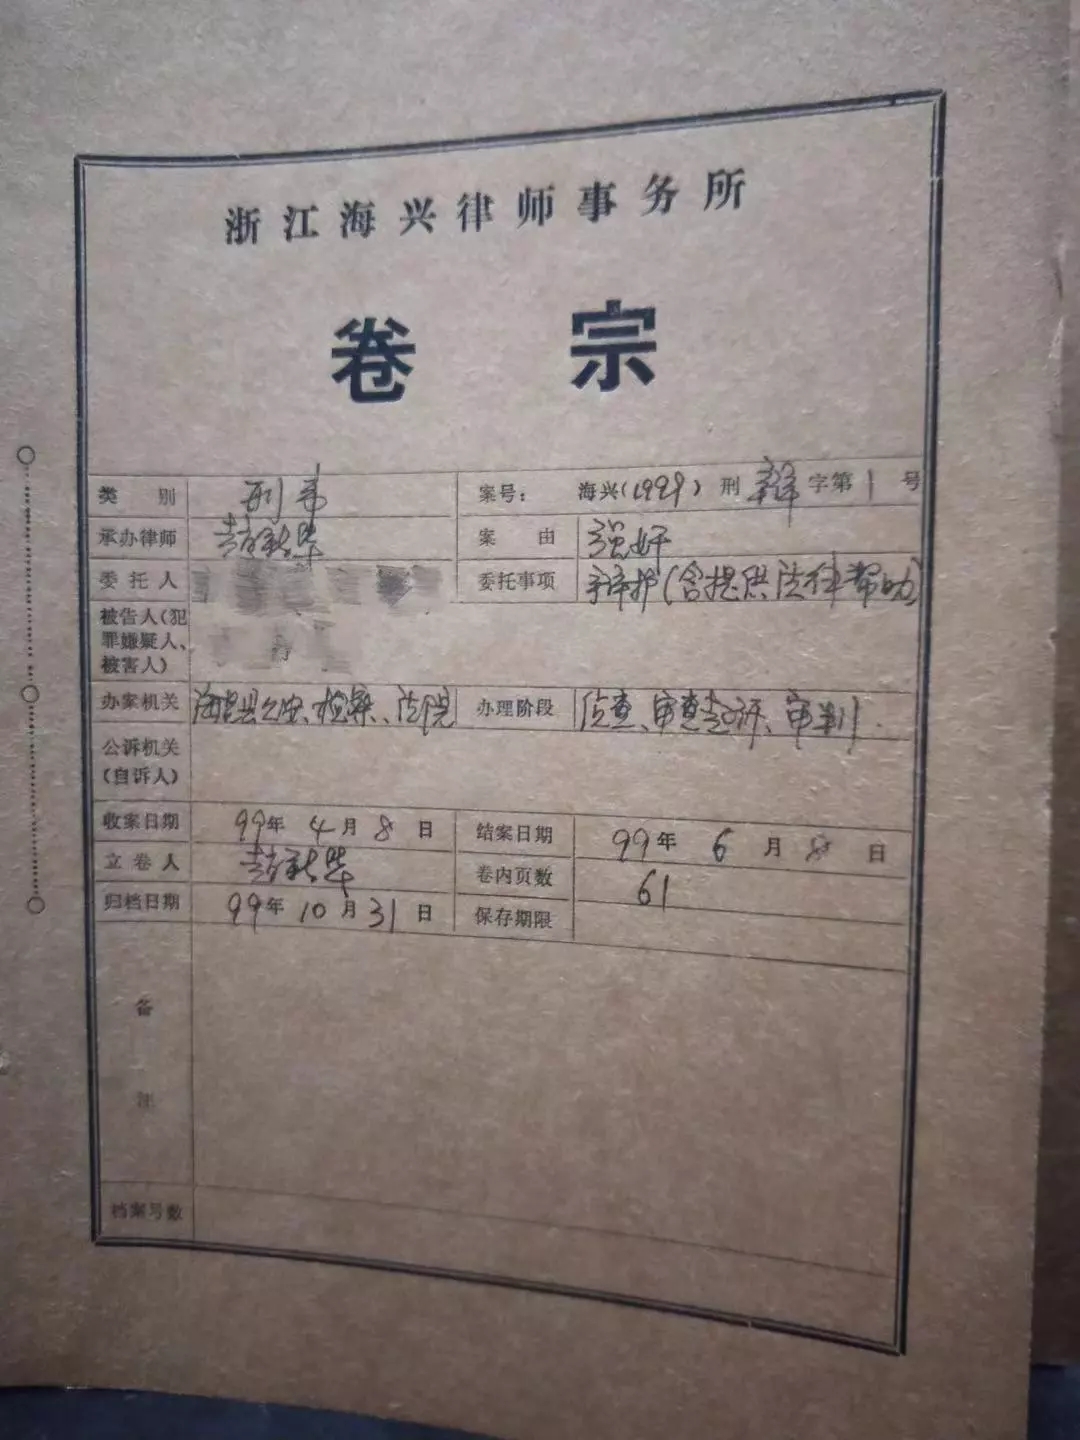 浙江海兴律师事务所
卷 宗
类 别 刑事 案号: 海兴(1999)刑辩字第1号
承办律师 案 由 强奸
委托人 委托事项 辩护(含提供法律帮助)
被告人(犯
罪嫌疑人、
被害人)
办案机关 海盐县公安、检察、法院 办理阶段 侦查、审查起诉、审判.
公诉机关
(自诉人)
收案日期 99年4月8日 结案日期 99年6月8日
立卷人 卷内页数 61
归档日期 99年10月31日 保存期限
备
注
档案号数